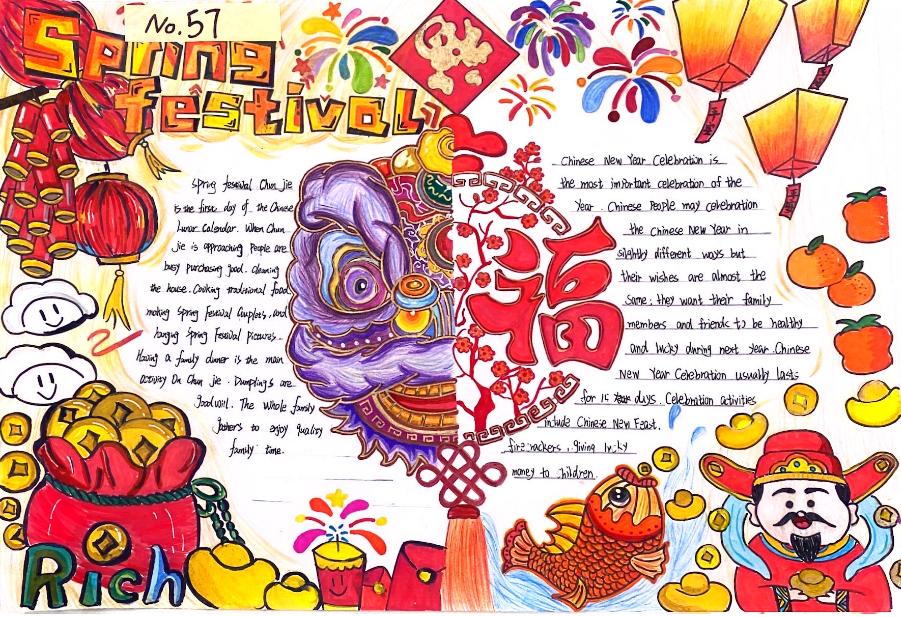 No.57
Spring
festival
Spring festival Chun jie
is the first day of the Chinese
Lunar Calendar. When Chun
jie is approaching People are
busy purchasing food. cleaning
the house. Cooking traditional food
making Spring Festival Couplets, and
hanging Spring Festival Pictures.
Having a family dinner is the main
activity On Chun jie. Dumplings are
good will. The whole family
gathers to enjoy quality
family time.
福
Chinese New Year Celebration is
the most important celebration of the
Year. Chinese People may celebration
the Chinese New Year in
slightly different ways but
their wishes are almost the
same; they want their family
members and friends to be healthy
and lucky during next year. Chinese
New Year Celebration usually lasts
for 15 days. Celebration activities
include Chinese New Feast,
firecrackers, giving lucky
money to children.
Rich